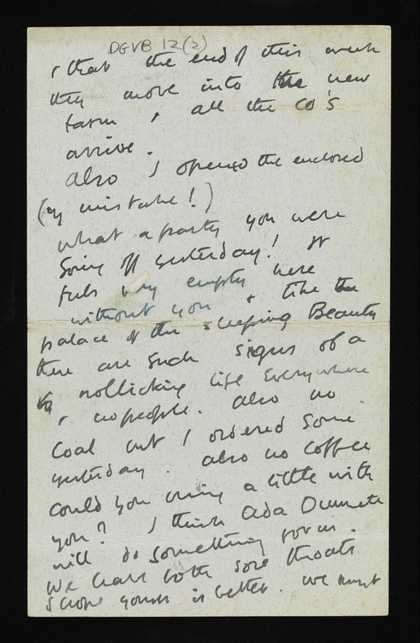 DGVB 12(2)
& that the end of this week
they move into the new
farm & all the CO's
arrive.
Also I opened the enclosed
(by mistake!)
What a party you were
going off yesterday! It
feels very empty here
without you & like the
palace of the Sleeping Beauty
there are such signs of a
rollicking life everywhere
& no people. Also no
Coal but I ordered some
yesterday. Also no Coffee
could you bring a little with
you? I think Ada
will do something for us.
We have both sore throats
& hope yours is better. We must